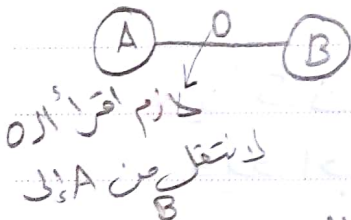 A 0 B
لازم اقرأ الـ 0
لانتقل من A إلى
B